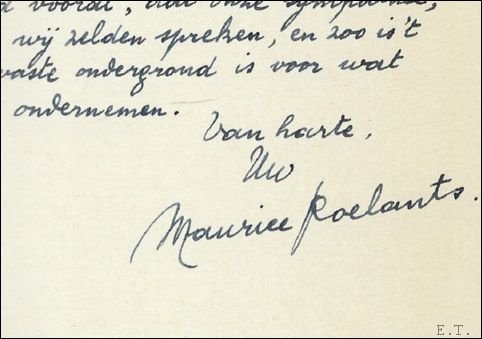 d vooral, dat onze sympathie,
wij zelden spreken, en zoo is't
vaste ondergrond is voor wat
ondernemen.
Van harte,
Uw
Maurice Roelants.
E.T.